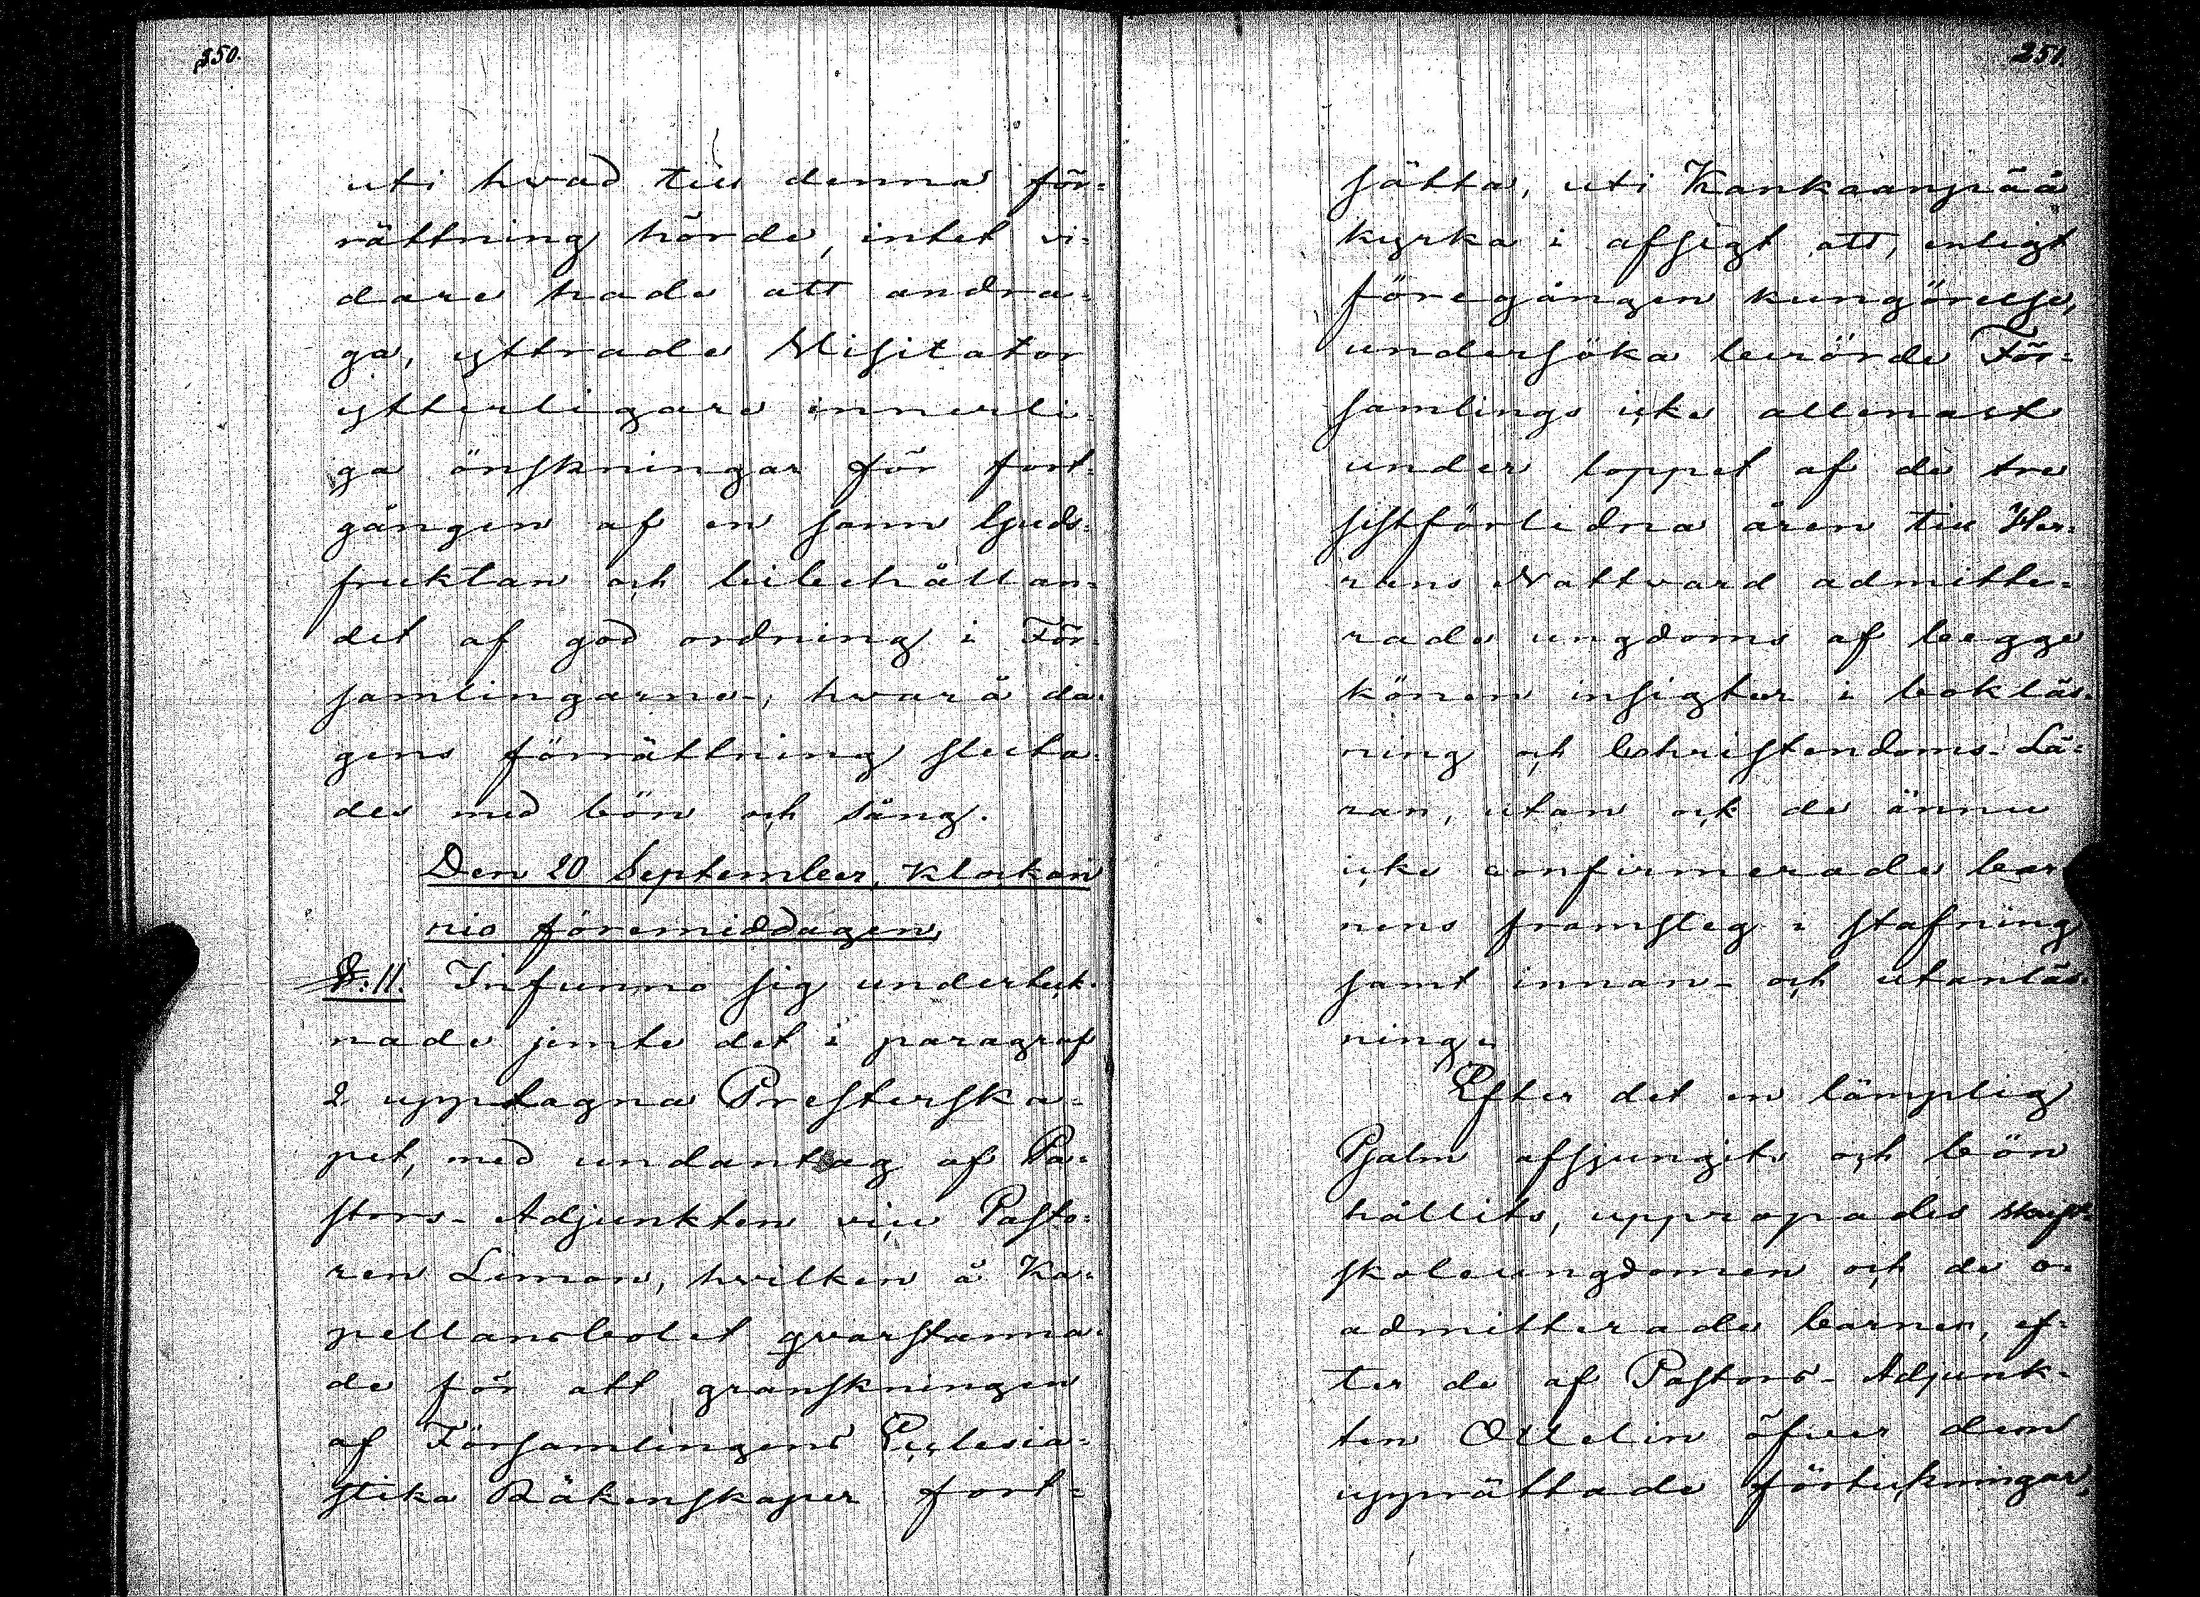 250.
uti hvad till denna för=
rättning hörde, intet vi=
dare hade att andra=
ga, yttrade Visitator
ytterligare innerli=
ga önskningar för fort=
gången af en sann Guds=
fruktan och bibehållan=
det af god ordning i För=
samlingarne, hvarå da=
gens förrättning sluta=
des med bön och sång.
Den 20 September, klockan
nio förmiddagen,
§. 11. Infunno sig underteck=
nade jemte det i paragraf
2 upptagna Presterska=
pet, med undantag af Pa=
stors-Adjunkten vice Pasto=
ren Liman, hvilken å Ka=
pellansbolet qvarstanna=
de för att granskningen
af Församlingens Ecclesia=
stika Räkenskaper fort=
251.
sätta, uti Kankaanpää
kyrka i afsigt att, enligt
föregången kungörelse,
undersöka berörde För=
samlings icke allenast
under loppet af de tre
sistförlidna åren till Her=
rans Nattvard admitte=
rade ungdoms af begge
könen insigter i bokläs=
ning och Christendoms-Lä=
ran, utan ock de ännu
icke confirmerade bar=
nens framsteg i stafning
samt innan- och utanläs=
ning.
Efter det en lämplig
Psalm afsjungits och bön
hållits, uppropades skrift=
skoleungdomen och de o=
admitterade barnen, ef=
ter de af Pastors-Adjunk=
ten Ollelin öfver dem
upprättade förteckningar,